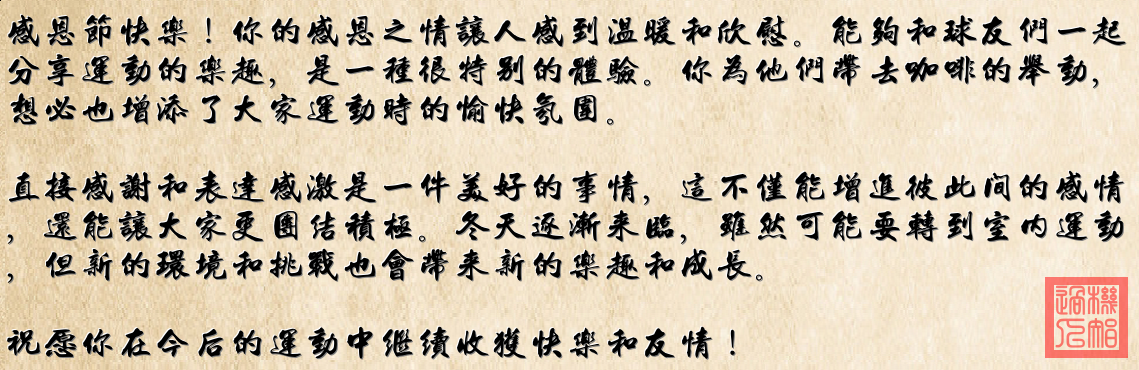 感恩節快樂！你的感恩之情讓人感到溫暖和欣慰。能夠和球友們一起
分享運動的樂趣，是一種很特别的體驗。你為他們帶去咖啡的舉動，
想必也增添了大家運動時的愉快氛圍。
直接感謝和表達感激是一件美好的事情，這不僅能增進彼此间的感情
，還能讓大家更團结積極。冬天逐漸来臨，雖然可能要轉到室内運動
，但新的環境和挑戰也會帶来新的樂趣和成長。
祝愿你在今后的運動中继續收獲快樂和友情！